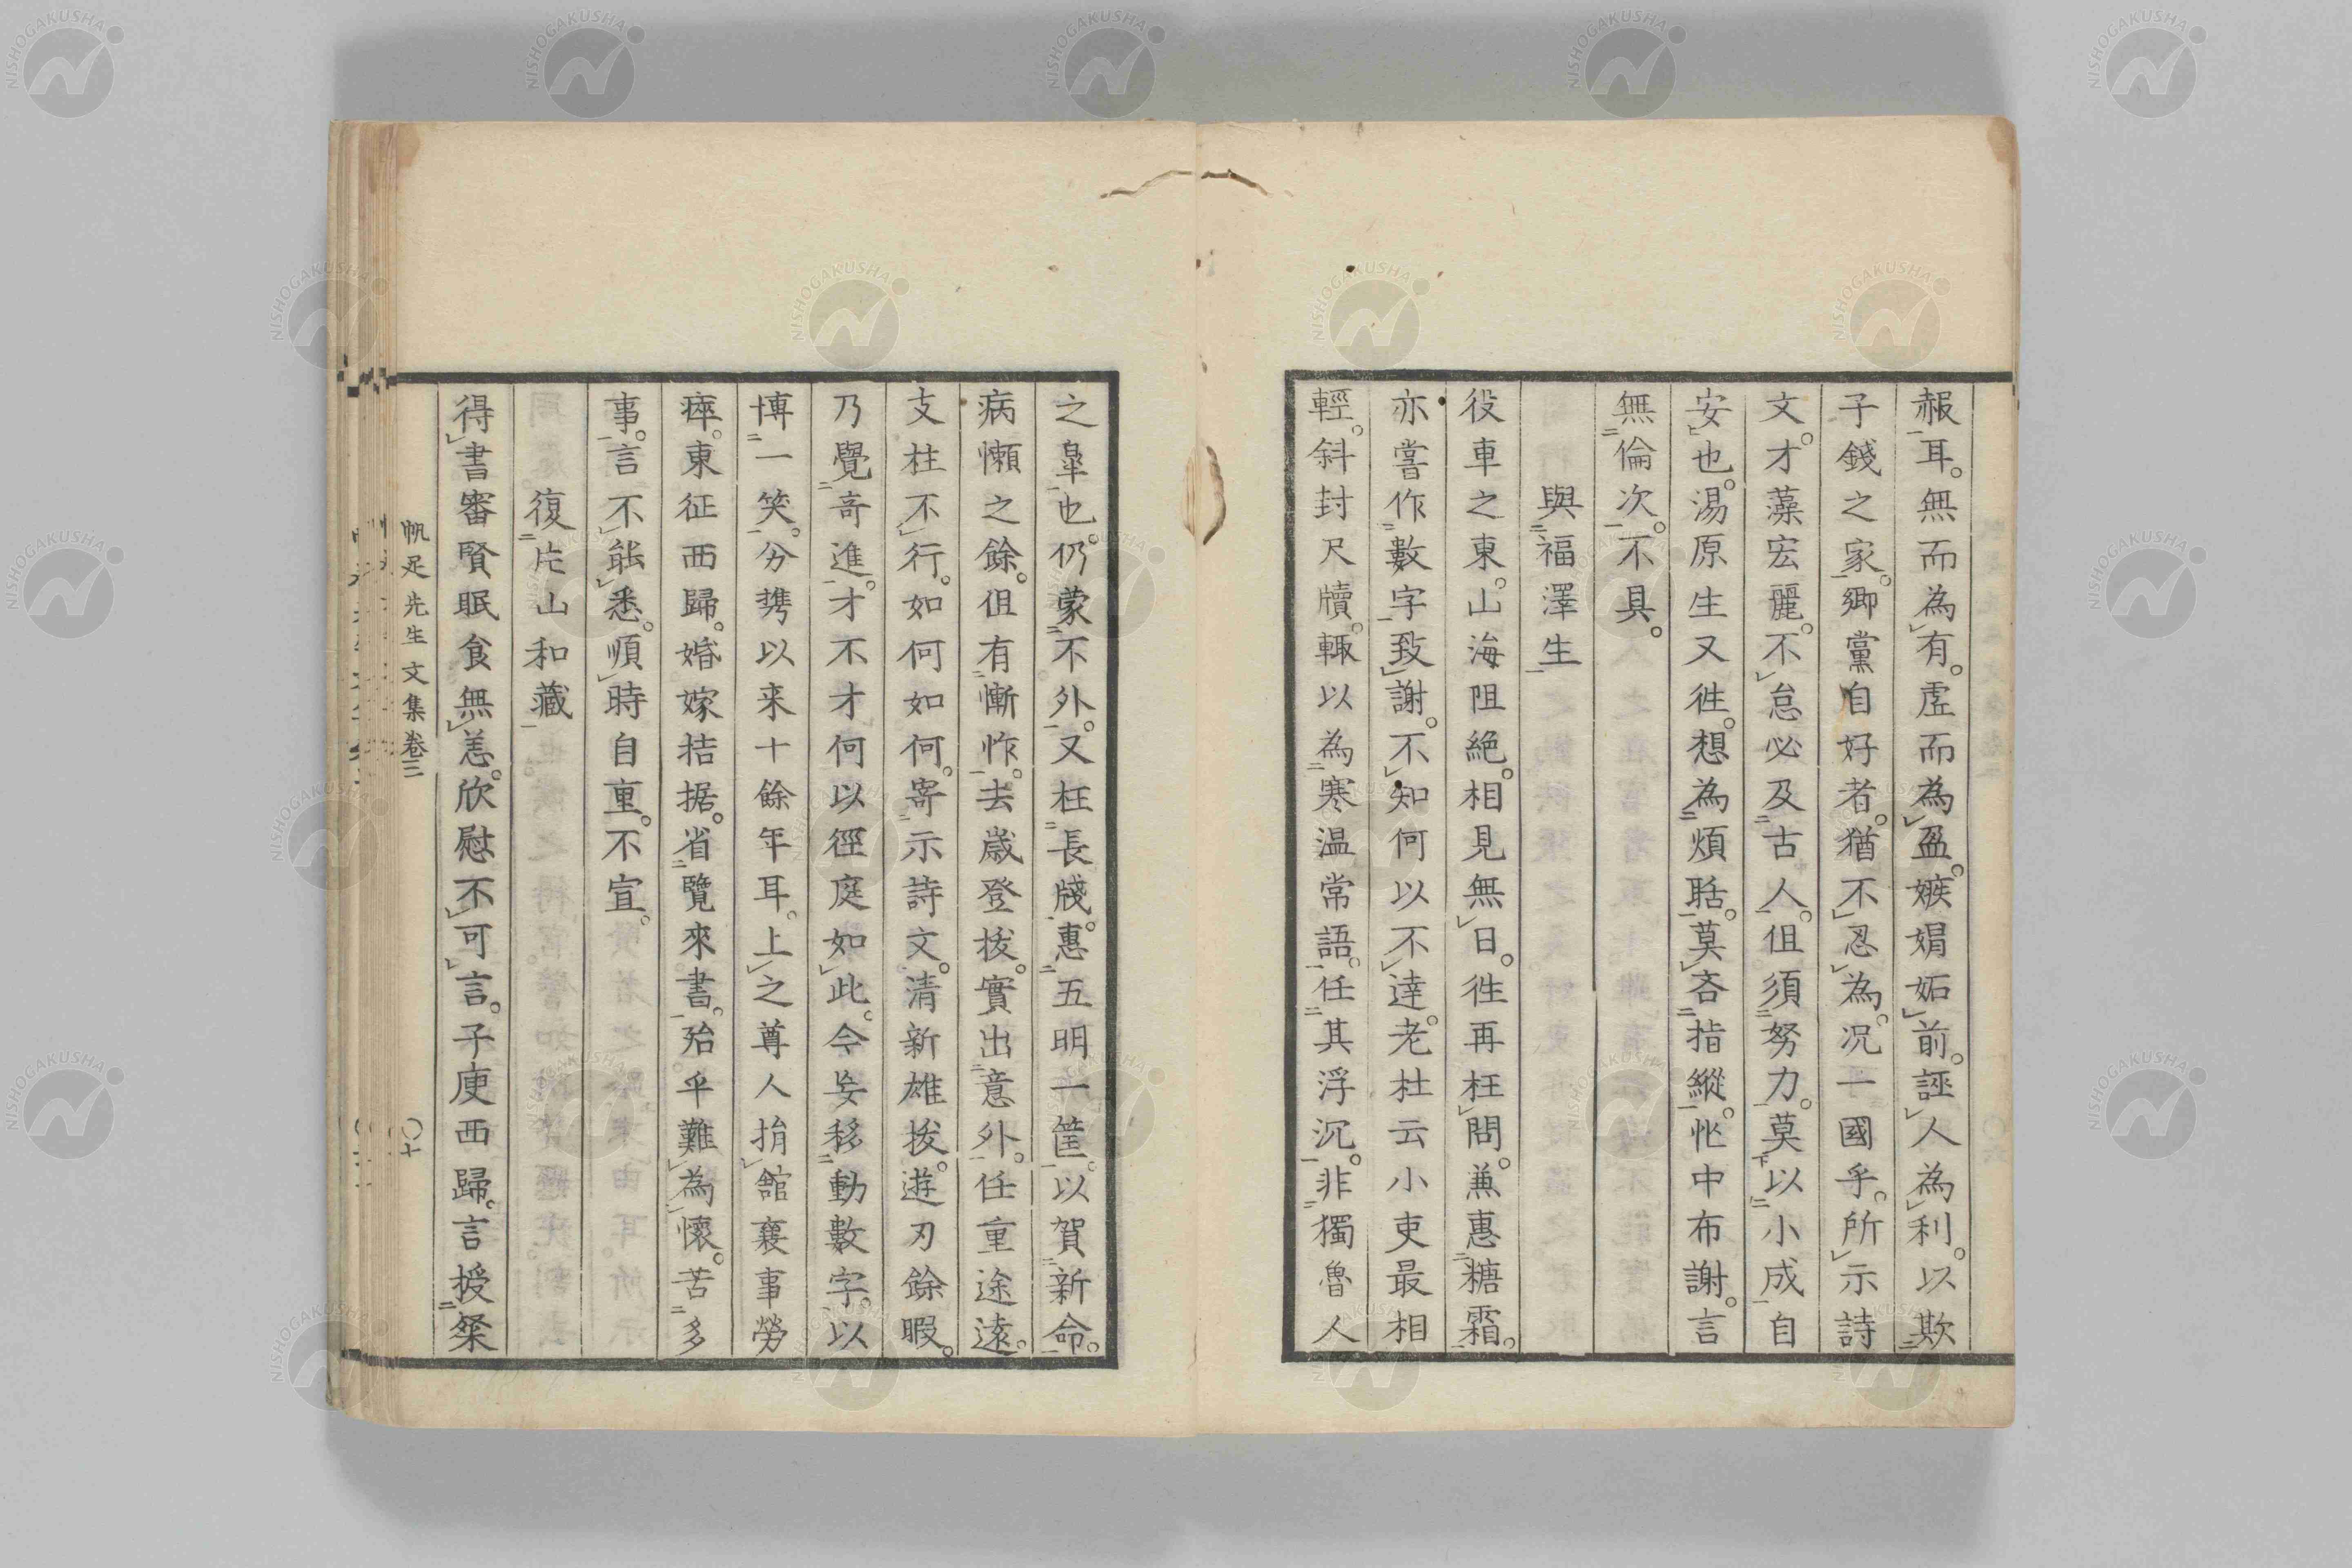 赧耳。無而為有。虗而為盈。嫉娼妬前。誣人為利。以欺
子錢之家。鄉黨自好者。猶不忍為。况一國乎。所示詩
文。才藻宏麗。不怠必及古人。但須努力。莫以小成自
安也。湯原生又徃。想為煩聒。莫吝指縱。忙中布謝。言
無倫次。不具。
與福澤生
役車之東。山海阻絶。相見無日。徃再枉問。兼惠糖霜。
亦嘗作數字致謝。不知何以不達。老杜云小吏最相
輕。斜封尺牘。輙以為寒温常語。任其浮沉。非獨魯人
之臯也。仍蒙不外。又枉長牋。惠五明一筐。以賀新命。
病懶之餘。但有慚怍。去歲登拔。實出意外。任重途遠。
支柱不行。如何如何。寄示詩文。清新雄拔。遊刃餘暇。
乃覺奇進。才不才何以徑庭如此。今妄移動數字。以
博一笑。分携以来十餘年耳。上之尊人捐館襄事勞
瘁。東征西歸。婚嫁拮据。省覽來書。殆乎難為懷。苦多
事。言不能悉。順時自重。不宣。
復片山和藏
得書審賢眠食無恙。欣慰不可言。子庚西歸。言授粲
帆足先生文集卷三
〇十
NISHOGAKUSHA